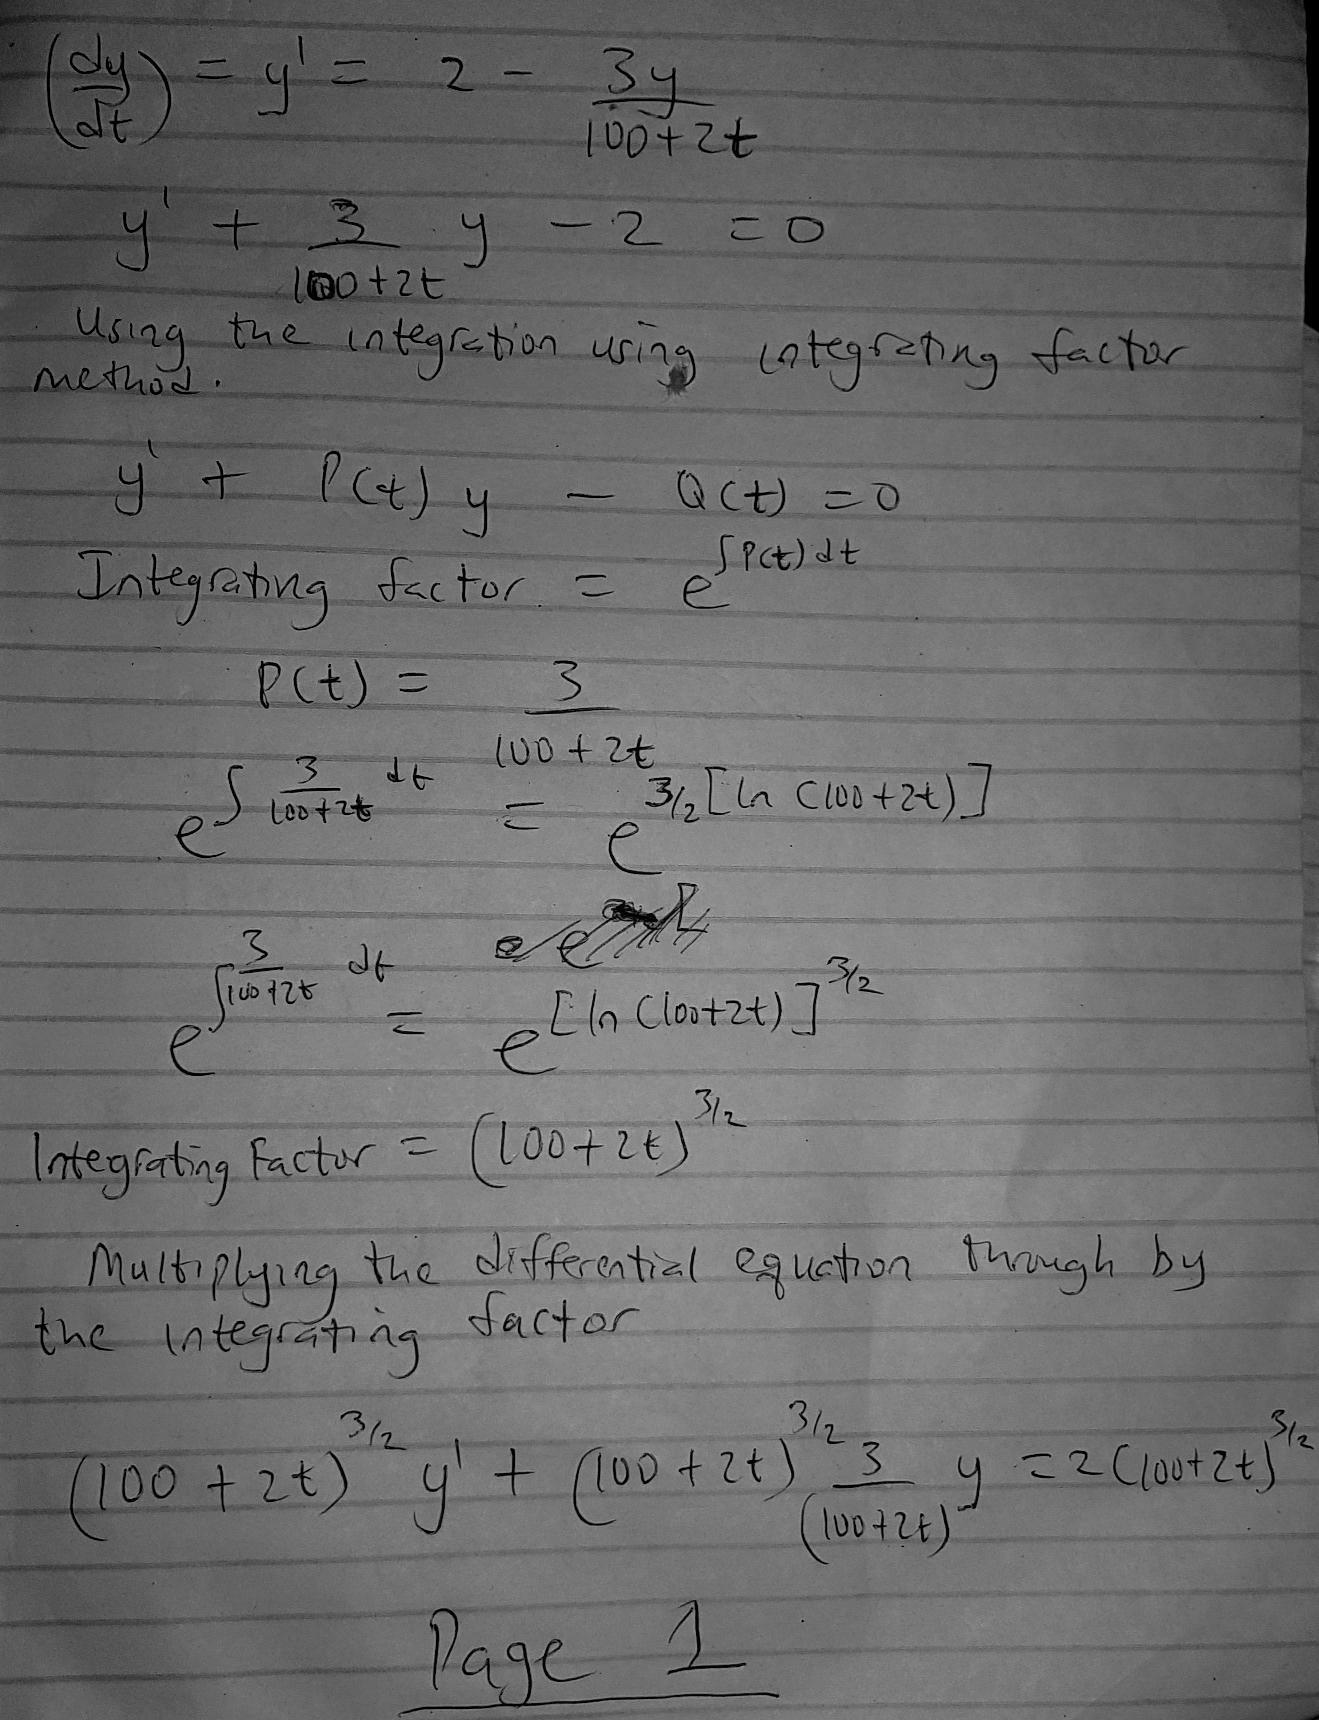 (dy/dt) = y' = 2 - 3y/(100+2t)
y' + 3/(100+2t) y - 2 = 0
Using the integration using integrating factor
method.
y' + P(t) y - Q(t) = 0
Integrating factor = e^∫P(t)dt
P(t) = 3/(100+2t)
e^∫ 3/(100+2t) dt = e^3/2[ln(100+2t)]
e^∫ 3/(100+2t) dt = e^[ln(100+2t)]^3/2
Integrating Factor = (100+2t)^3/2
Multiplying the differential equation through by
the integrating factor
(100+2t)^3/2 y' + (100+2t)^3/2 3/(100+2t) y = 2(100+2t)^3/2
Page 1